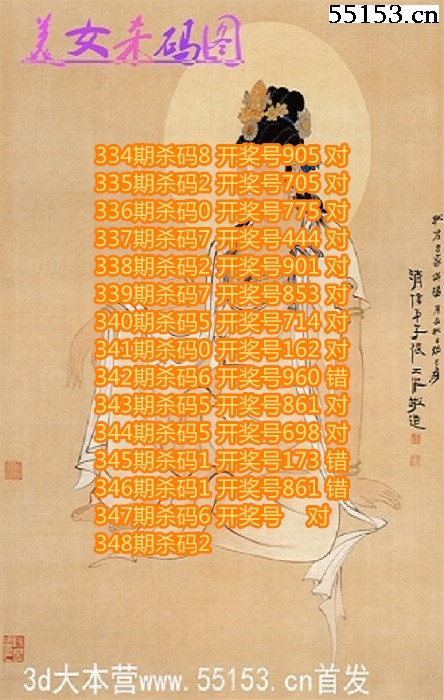 55153.cn
美女杀码图
334期杀码8 开奖号905 对
335期杀码2 开奖号705 对
336期杀码0 开奖号775 对
337期杀码7 开奖号444 对
338期杀码2 开奖号901 对
339期杀码7 开奖号853 对
340期杀码5 开奖号714 对
341期杀码0 开奖号162 对
342期杀码6 开奖号960 错
343期杀码5 开奖号861 对
344期杀码5 开奖号698 对
345期杀码1 开奖号173 错
346期杀码1 开奖号861 错
347期杀码6 开奖号 对
348期杀码2
3d大本营www.55153.cn首发